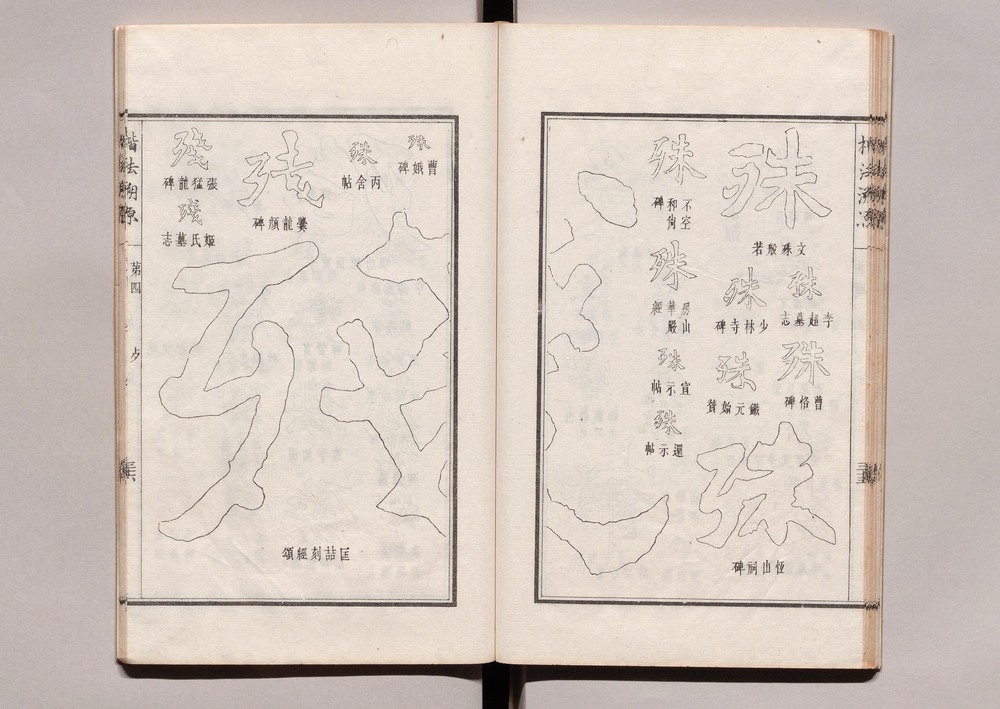 殊
文殊般若
殊
李超墓志
殊
少林寺碑
殊
曹恪碑
殊
恆山祠碑
殊
殊
不空
和尚碑
殊
房山
華嚴
經
殊
宣示帖
殊
還示帖
殊
曹娥碑
殊
丙舍帖
殘
爨龍顏碑
殘
張猛龍碑
殘
姬氏墓志
殘
匡喆刻經頌
楷法溯源
第四
歹